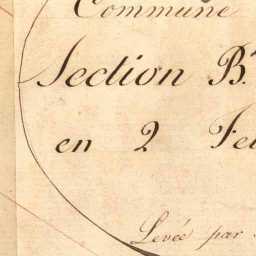 Commune
Section B.
en 2 Fe
Levée par